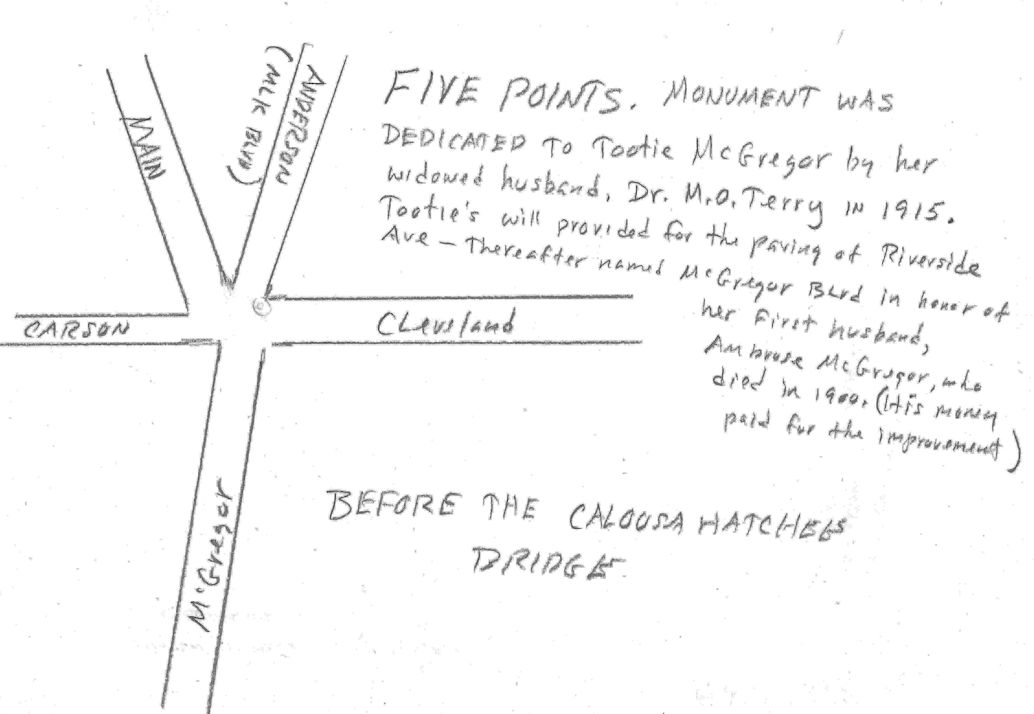 MAIN
ANDERSON
(MLK BLVD)
FIVE POINTS. MONUMENT WAS
DEDICATED TO Tootie McGregor by her
widowed husband, Dr. M.O. Terry IN 1915.
Tootie's will provided for the paving of Riverside
Ave — Thereafter named McGregor Blvd in honor of
her First husband,
Ambrose McGregor, who
died in 1900. (His money
paid for the improvement)
CARSON
Cleveland
McGregor
BEFORE THE CALOOSAHATCHEE
BRIDGE